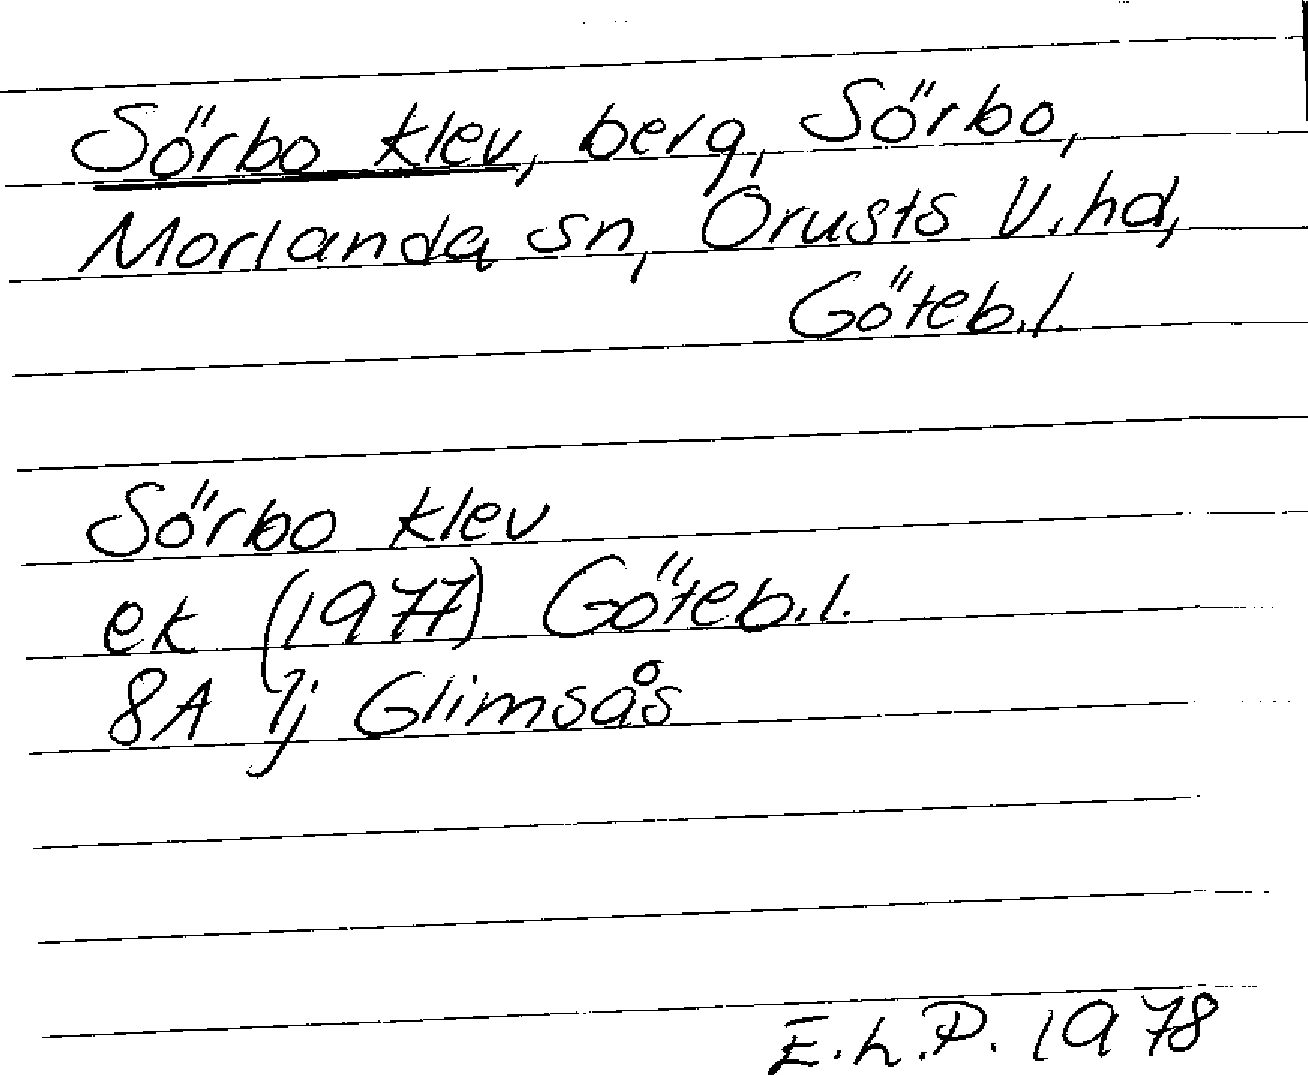 Sörbo klev, berg, Sörbo,
Morlanda sn, Orusts V. hd,
Göteb. l.
Sörbo klev
ek (1977) Göteb. l.
8A 7j Glimsås
E.L.P. 1978